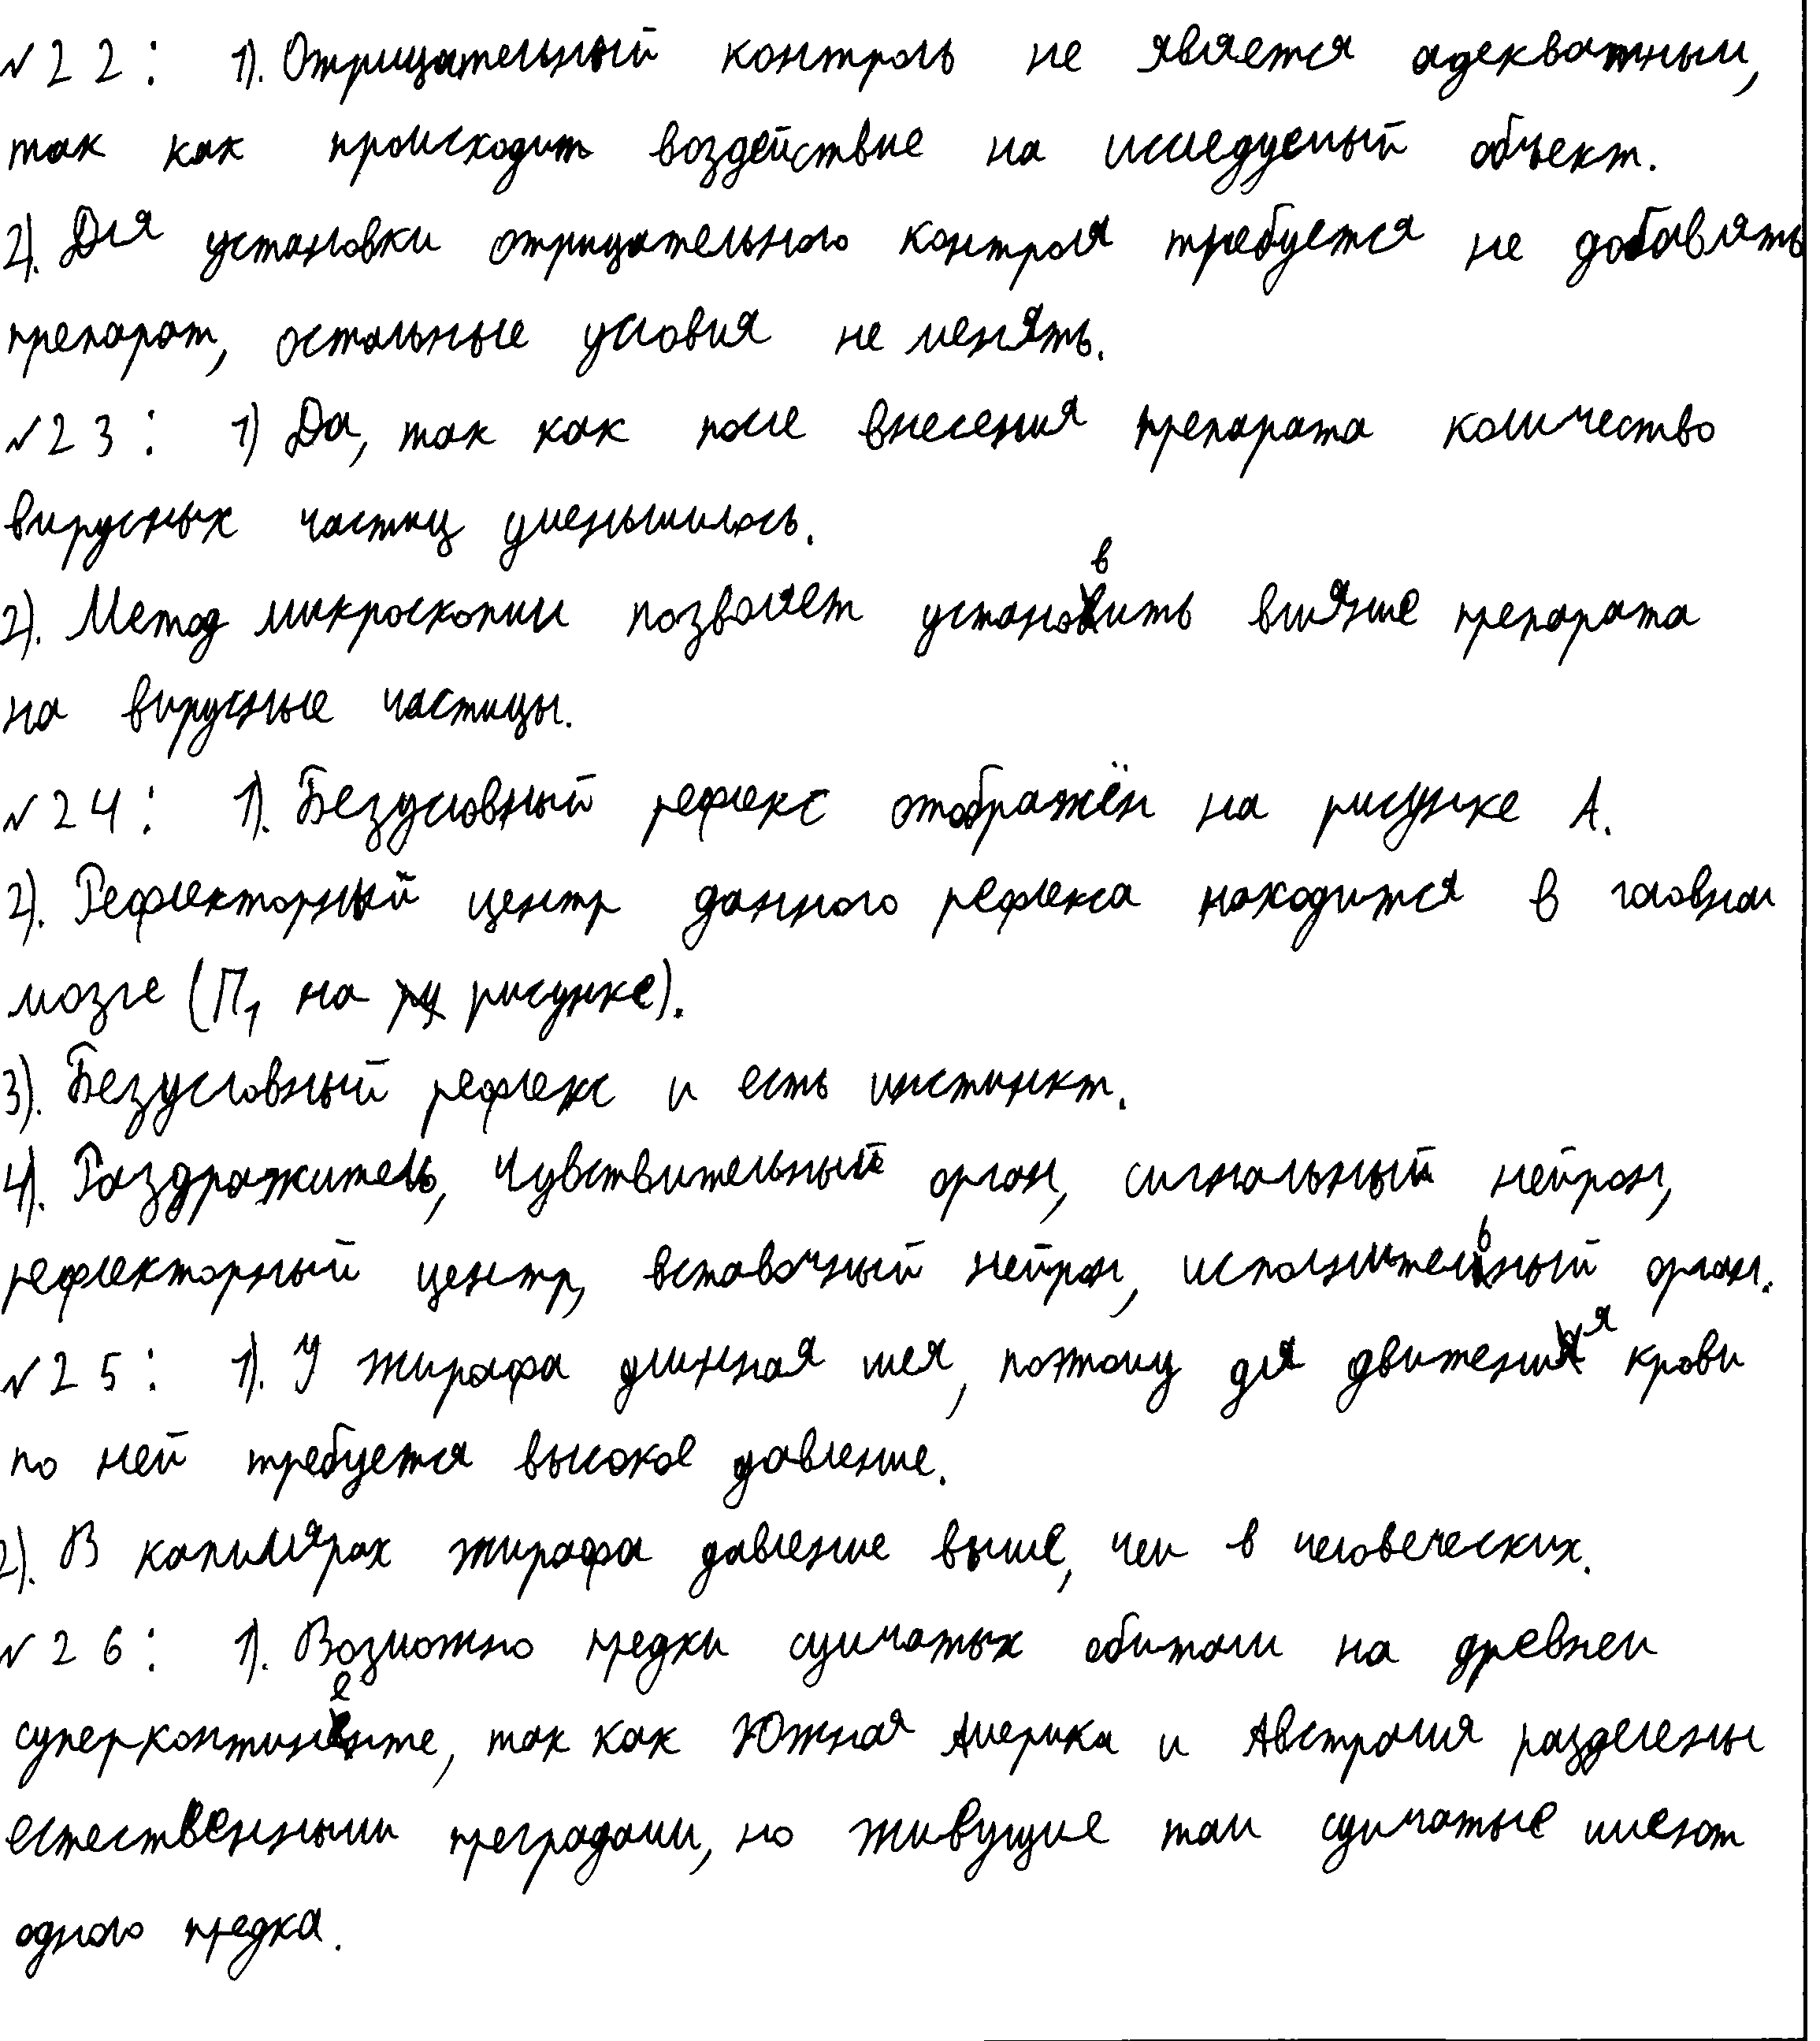 №22: 1). Отрицательный контроль не является адекватным,
так как происходит воздействие на исследуемый объект.
2). Для установки отрицательного контроля требуется не добавлять
препарат, остальные условия не менять.
№23: 1) Да, так как после внесения препарата количество
вирусных частиц уменьшилось.
2). Метод микроскопии позволяет установить влияние препарата
на вирусные частицы.
№24: 1). Безусловный рефлекс отображён на рисунке А.
2). Рефлекторный центр данного рефлекса находится в головном
мозге (П1 на рисунке).
3). Безусловный рефлекс и есть инстинкт.
4). Раздражитель, чувствительный орган, сигнальный нейрон,
рефлекторный центр, вставочный нейрон, исполнительный орган.
№25: 1). У жирафа длинная шея, поэтому для движения крови
по ней требуется высокое давление.
2). В капиллярах жирафа давление выше, чем в человеческих.
№26: 1). Возможно предки сумчатых обитали на древнем
суперконтиненте, так как Южная Америка и Австралия разделены
естественными преградами, но живущие там сумчатые имеют
одного предка.